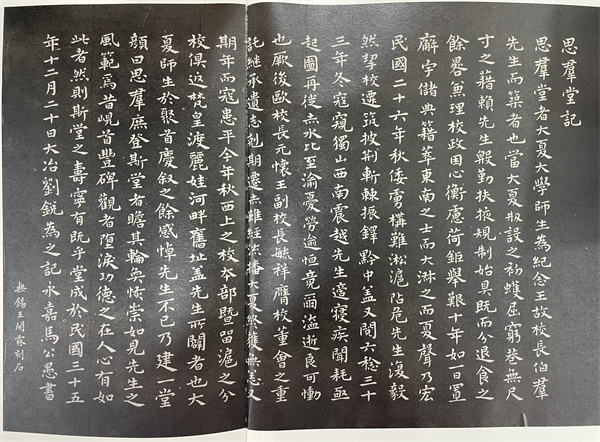 思羣堂記
思羣堂者大夏大學師生為紀念王故校長伯羣
先生而築者也當大夏刱設之初蠖屈窮巷無尺
寸之藉賴先生毅勤扶掖規制始具既而分退食之
餘晷兼理校政困心衡慮荷鉅舉艱十年如一日置
廨宇儲典籍萃東南之士而大淑之而夏聲乃宏
民國二十六年秋倭虜構難淞滬阽危先生復毅
然挈校遷筑披荆斬棘振鐸黔中蓋又閱六稔三十
三年冬寇窺獨山西南震越先生適寢疾聞耗亟
起圖再徙赤水比至渝憂勞逾恒竟爾溘逝良可慟
也厥後歐校長元懷王副校長毓祥膺校董會之重
託繼承遺志剋期遷赤雖經流播大夏終獲無恙又
期年而寇患平今年秋西上之校本部暨留滬之分
校俱返梵皇渡麗娃河畔舊址蓋先生所闢者也大
夏師生於聚首慶叙之餘感悼先生不已乃建一堂
顏曰思羣庶登斯堂者瞻其輪奐崇如見先生之
風範焉昔峴首豐碑觀者墮淚功德之在人心有如
此者然則斯堂之壽寧有既乎堂成於民國三十五
年十二月二十日大冶劉銳為之記永嘉馬公愚書
無錫王開霖刻石